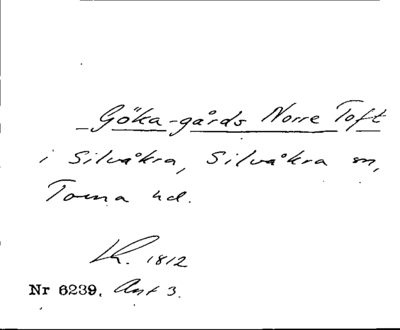 Göka-gårds Norre Toft
i Silvåkra, Silvåkra sn,
Torna hd.
Lk. 1812
Nr 6239. Akt 3.